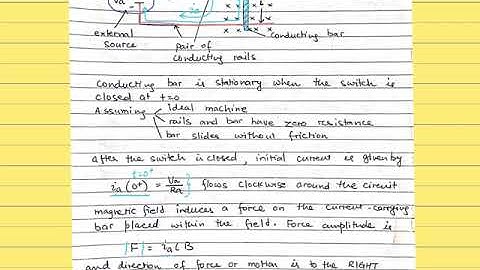 Va
ia
external
source
pair of
conducting rails
conducting bar
Conducting bar is stationary when the switch is
closed at t=0
Assuming ideal machine
rails and bar have zero resistance
bar slides without friction
After the switch is closed, initial current is given by
t=0+
ia(0+) = Va/Ra } flows clockwise around the circuit
magnetic field induces a force on the current-carrying
bar placed within the field. Force amplitude is
|F| = ia l B
and direction of force or motion is to the RIGHT